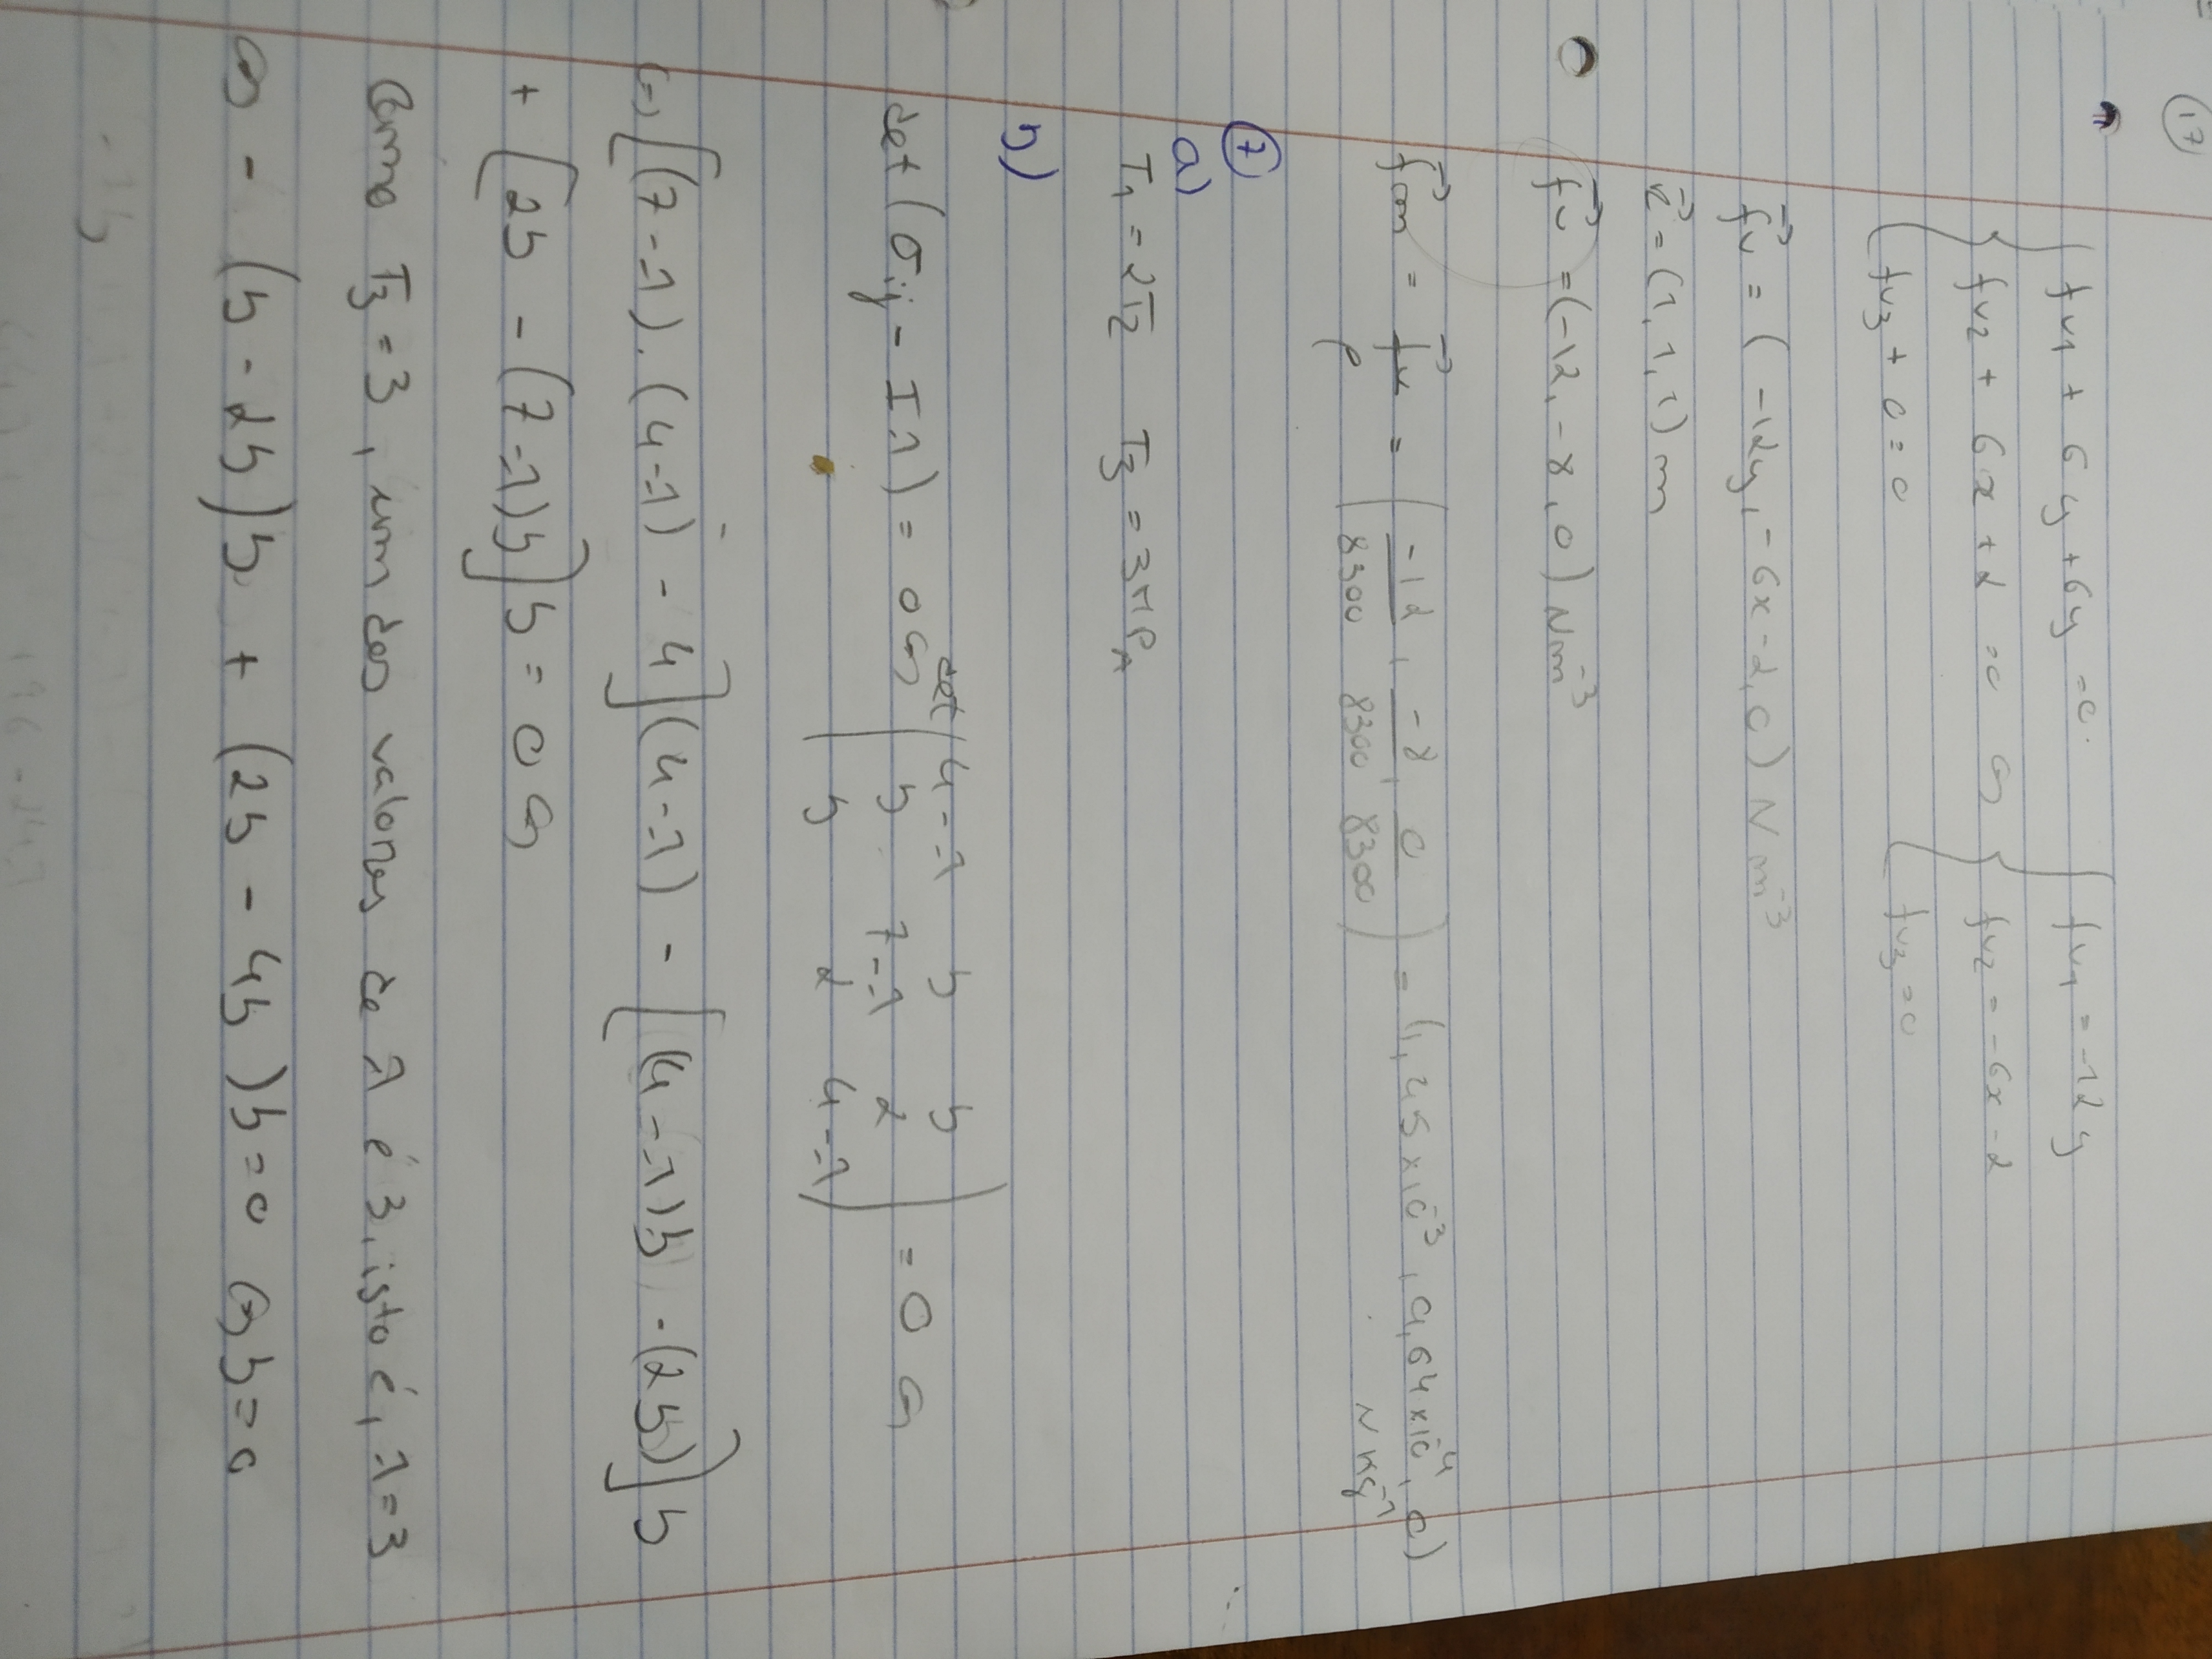 (17)
{ fv1 + 6y + 6y = 0
{ fv2 + 6x + 2 = 0 ⇔ { fv1 = -12y
{ fv3 + 0 = 0 { fv2 = -6x - 2
{ fv3 = 0
f⃗v = (-12y, -6x - 2, 0) N m⁻³
r⃗ = (1, 1, 1) m
f⃗v = (-12, -8, 0) N m⁻³
f⃗m = f⃗v/ρ = (-12/8300, -8/8300, 0/8300) = (1,45×10⁻³, 9,64×10⁻⁴, 0) N kg⁻¹
(7)
a)
T1 = 2T2 T3 = 3 MPa
b)
det(σij - Iλ) = 0 ⇔ det (4-λ b b
b 7-λ 2
b 2 4-λ) = 0 ⇔
⇔ [(7-λ).(4-λ) - 4](4-λ) - [(4-λ)b - (2b)]b
+ [2b - (7-λ)b]b = 0 ⇔
Como T3 = 3, um dos valores de λ é 3, isto é, λ = 3
⇔ - (b - 2b)b + (2b - 4b)b = 0 ⇔ b = 0